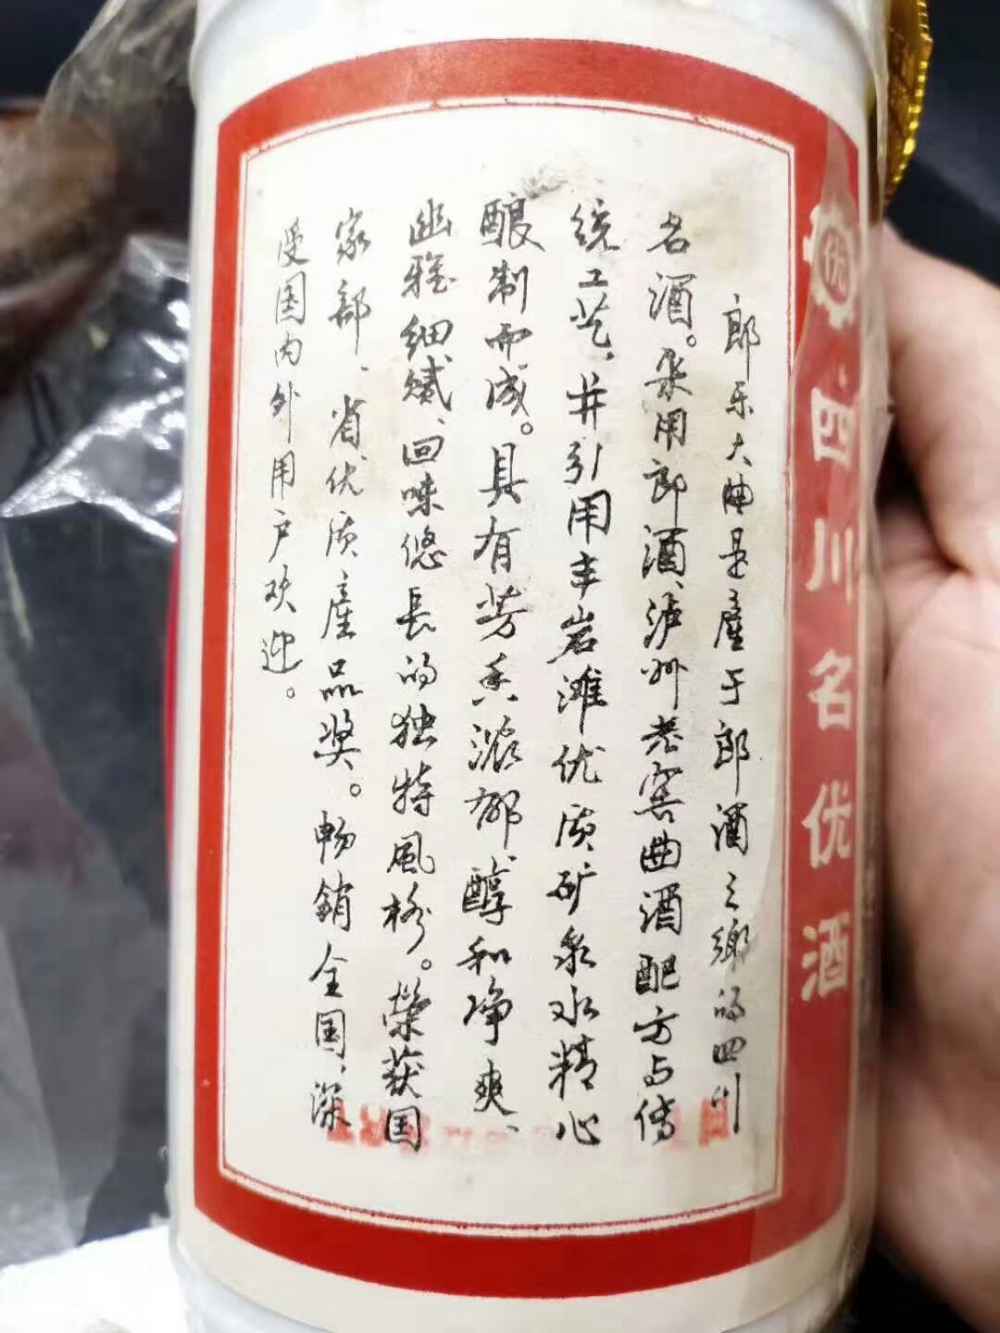 优
四川名优酒
郎乐大曲是產于郎酒之鄉的四川
名酒。采用郎酒、泸州老窖曲酒配方与传
统工艺、并引用丰岩滩优质矿泉水精心
酿制而成。具有芳香浓郁醇和净爽、
幽雅细腻、回味悠長的独特風格。榮获国
家部、省、优质產品奖。畅銷全国、深
受国内外用户欢迎。